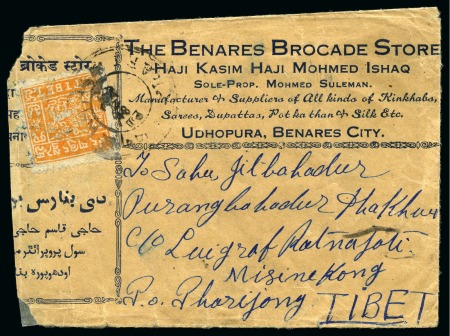 THE BENARES BROCADE STORE
HAJI KASIM HAJI MOHMED ISHAQ
SOLE-PROP. MOHMED SULEMAN.
Manufacturer & Suppliers of All kinds of Kinkhabs,
Sarees, Dupattas, Pot ka than & Silk Etc.
UDHOPURA, BENARES CITY.
ब्रोकेड स्टोर
TIBET
دی بنارس
حاجی قاسم حاجی
سول پروپرائٹر
اودھوپورہ بنا
To Sahu Jitbahadur
Purangbahadur Thakhur
C/o Luigraf Ratnajoti
Misinekong
P.o. Pharijong TIBET